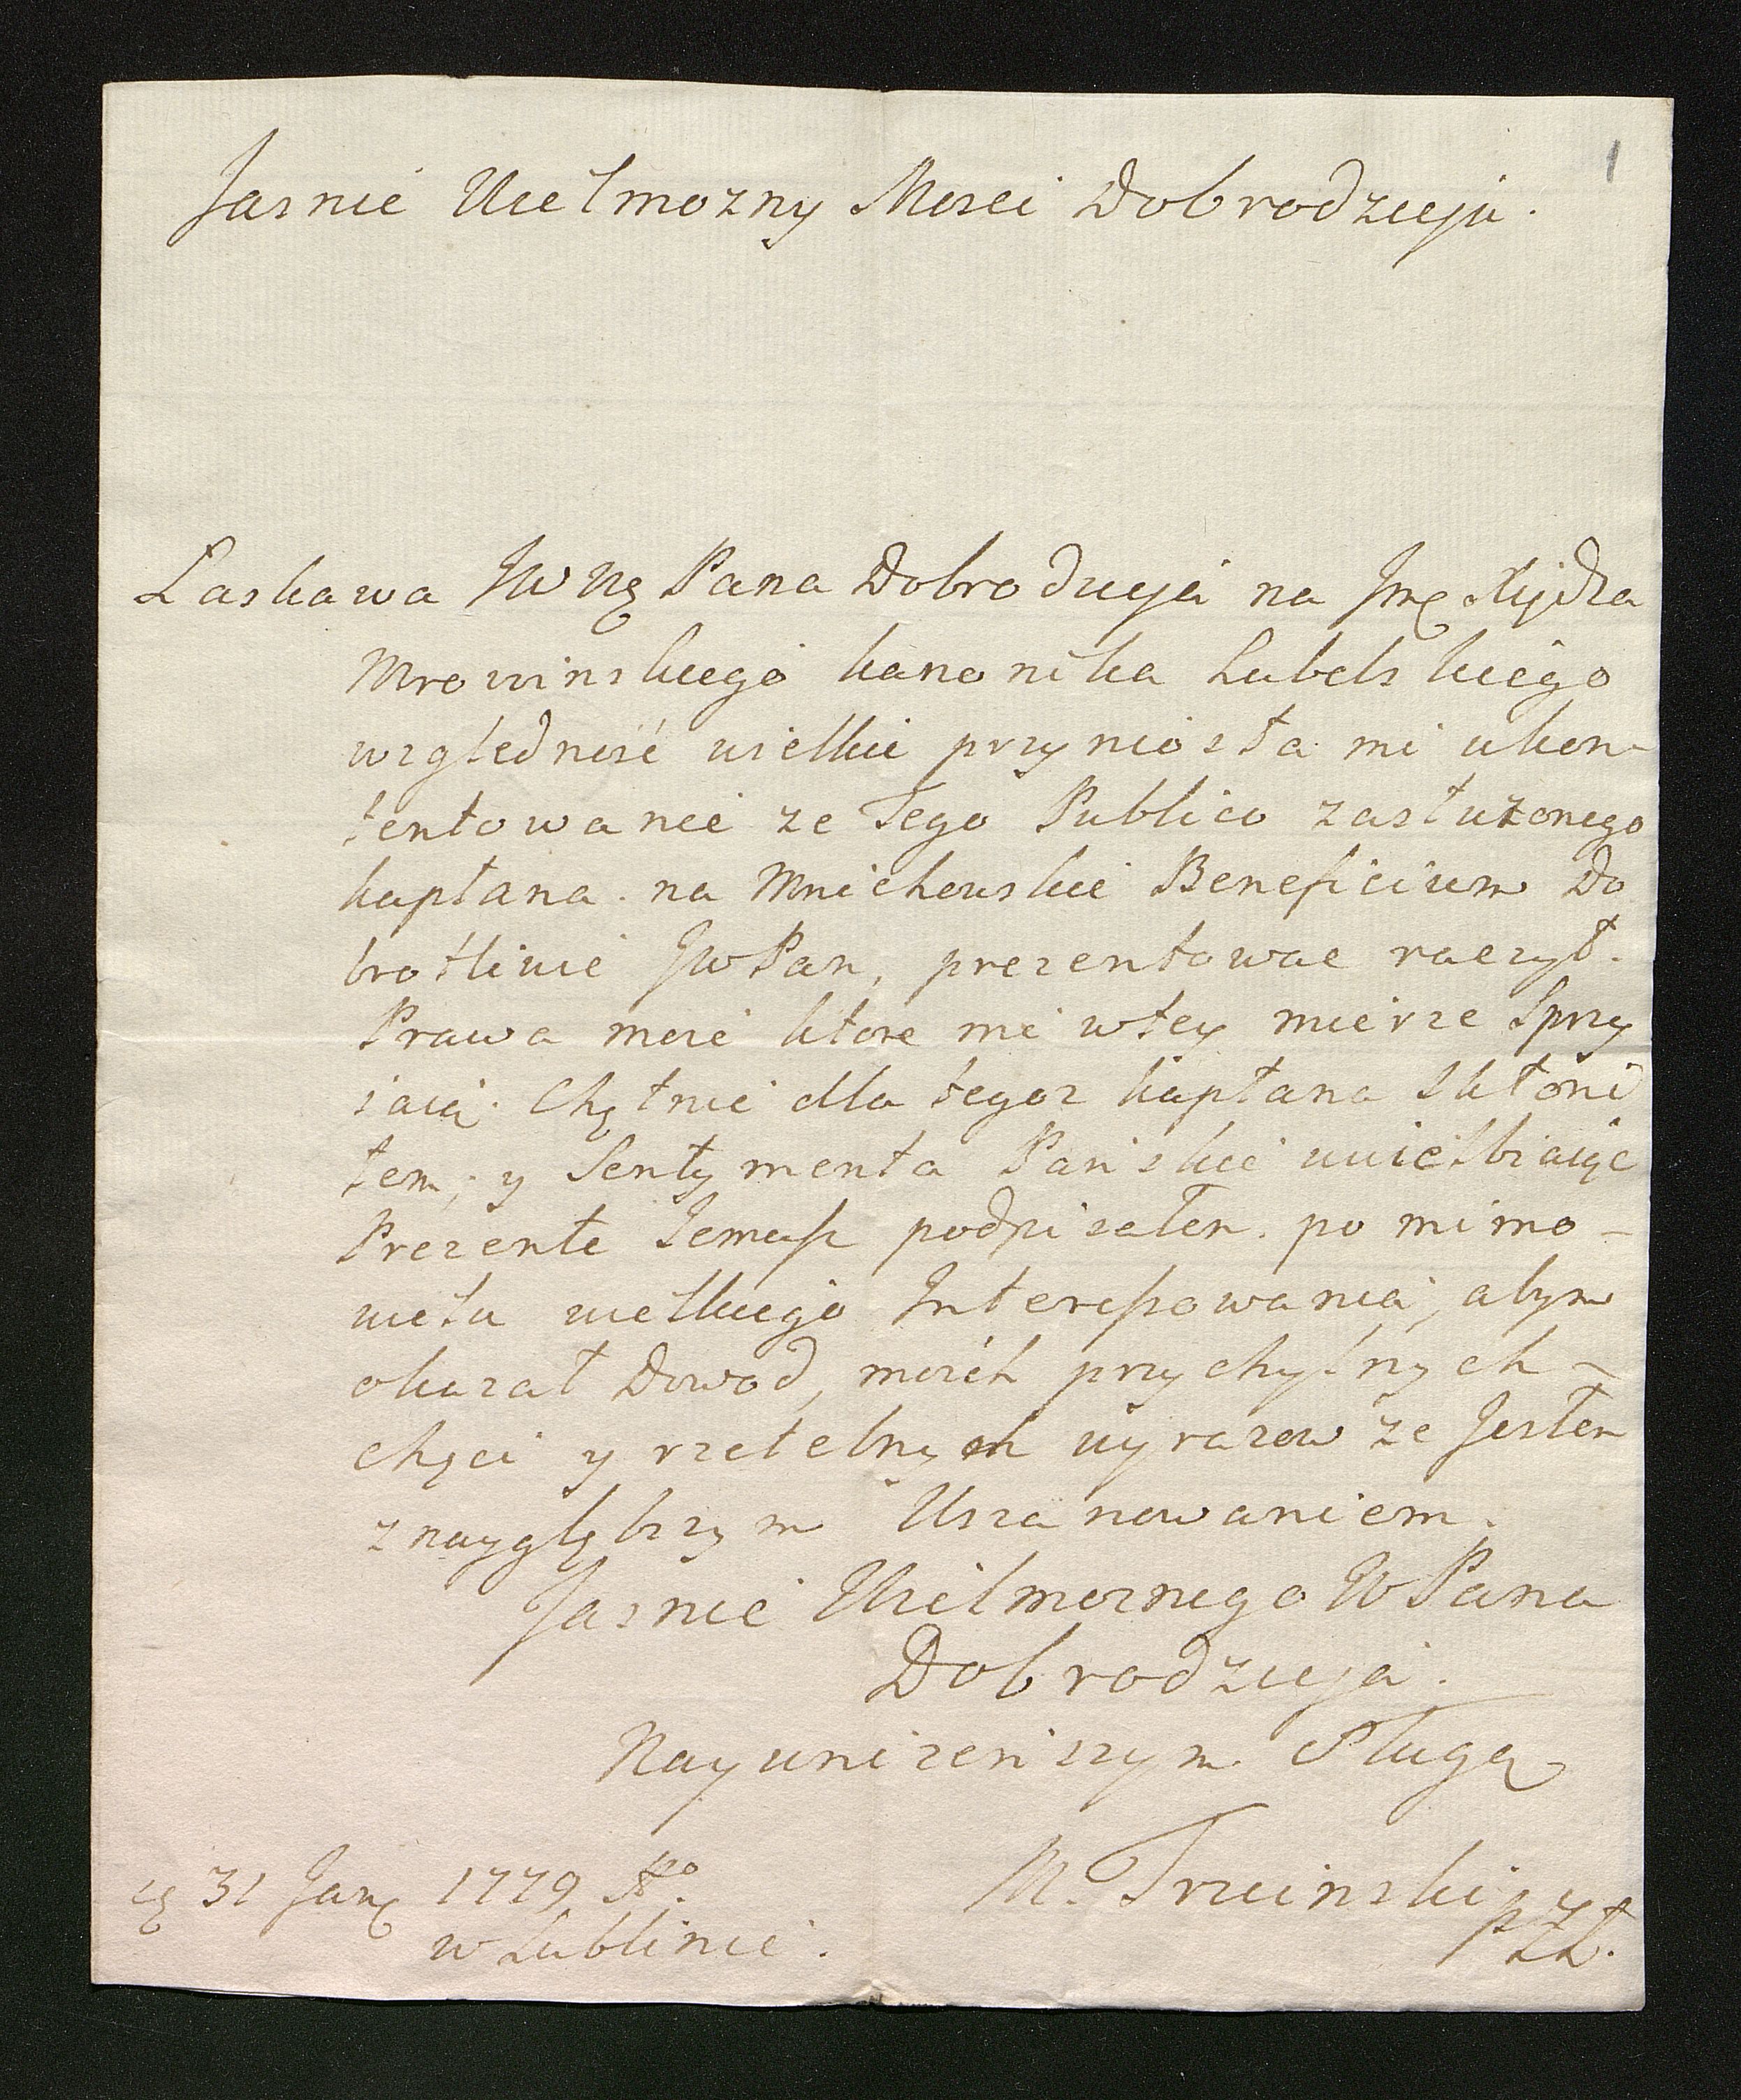 1
Jasnie Wielmozny Mosci Dobrodzieju.
Laskawa JW Wę Pana Dobrodzieja na Jmę Xiędza
Mrowinskiego kanonika Lubelskiego
względnosć wielkie przyniosła mi ukon-
tentowanie ze Tego Publico zasłużonego
kapłana. na Mnichowskie Beneficium Do
brotliwie JWPan, prezentowac raczył.
Prawa moie ktore mi wtey mierze Sprzy
iaią. Chętnie dla tegoz kapłana Skłoni
łem, y Sentymenta Pańskie uwielbiaiąc
Prezente Jemuż podpisałem. po mimo-
wielu wielkiego Interessowania, abym
okazał Dowod, moich przychylnych-
chęci y rzetelnych wyrazow ze Jestem
znaygłębszym Uszanowaniem.
Jasnie Wielmoznego WPana
Dobrodzieja.
Nayunizenszym Sługą
M. Trzcinski
31 Janę 1779 Ao.
w Lublinie.